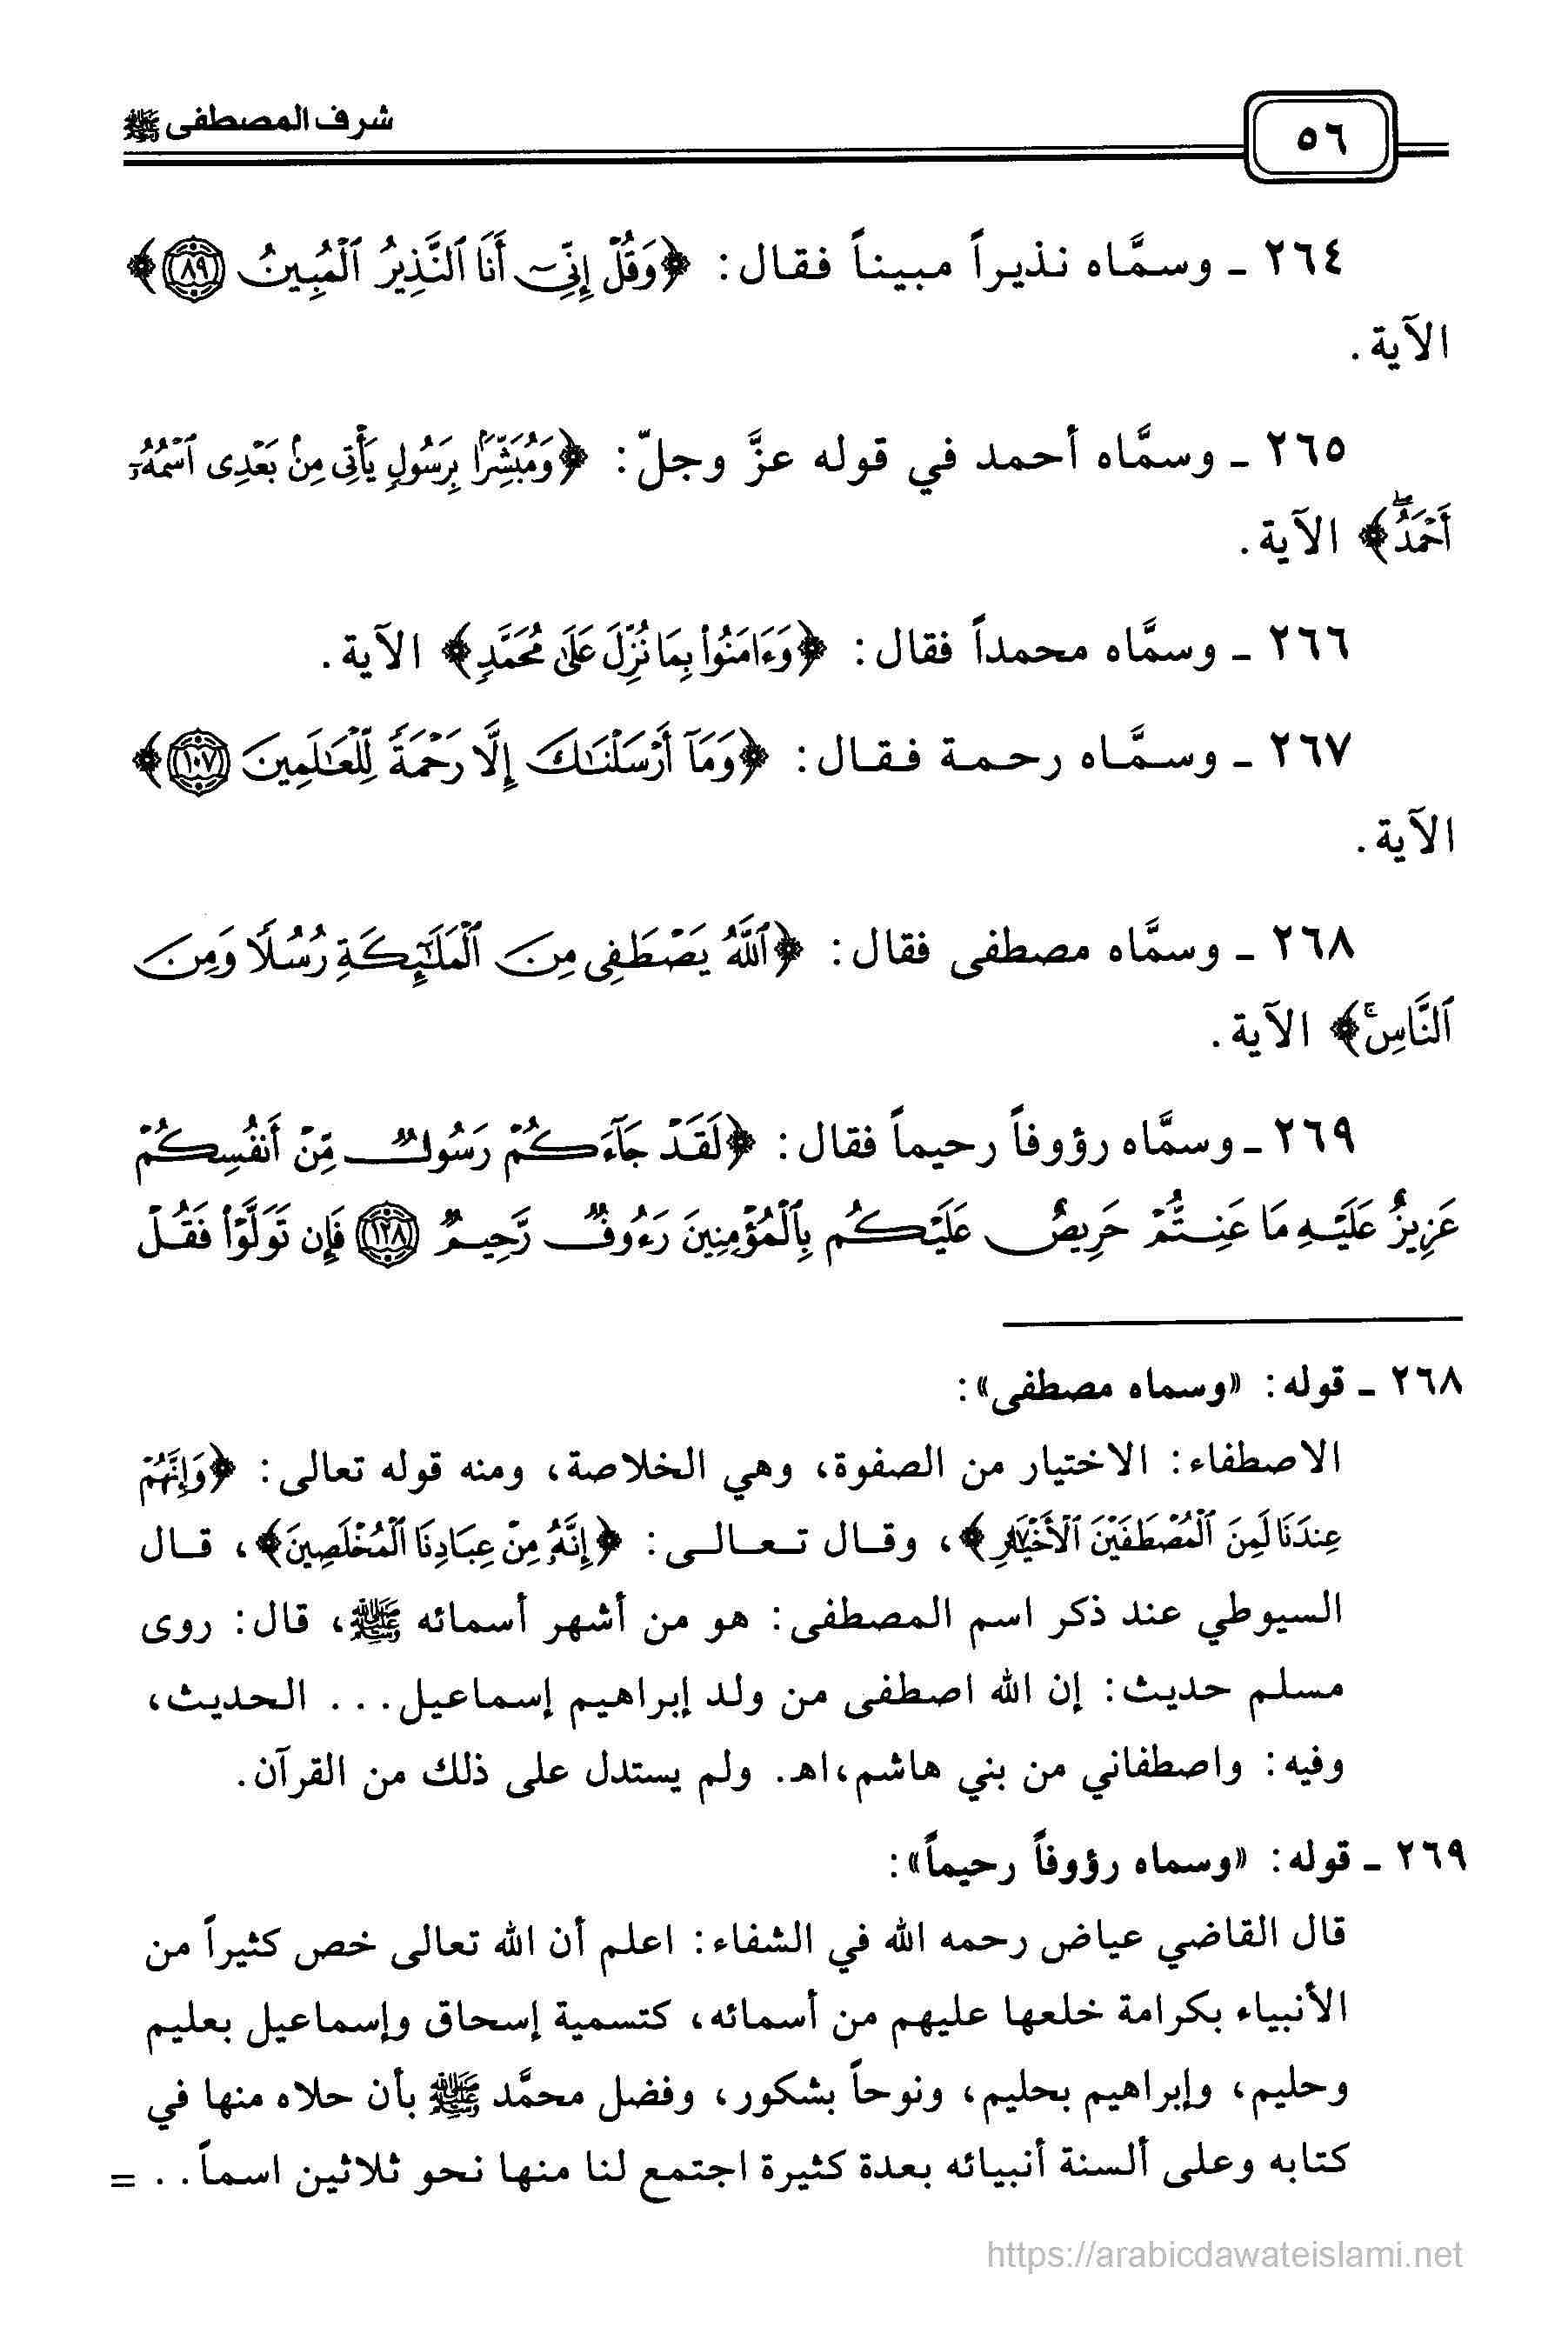 ٥٦
شرف المصطفى ﷺ
٢٦٤ ـ وسمَّاه نذيراً مبيناً فقال: ﴿وَقُلْ إِنِّىٓ أَنَا ٱلنَّذِيرُ ٱلْمُبِينُ ۝٨٩﴾
الآية.
٢٦٥ ـ وسمَّاه أحمد في قوله عزَّ وجلّ: ﴿وَمُبَشِّرًۢا بِرَسُولٍ يَأْتِى مِنۢ بَعْدِى ٱسْمُهُۥٓ
أَحْمَدُۖ﴾ الآية.
٢٦٦ ـ وسمَّاه محمداً فقال: ﴿وَءَامَنُوا۟ بِمَا نُزِّلَ عَلَىٰ مُحَمَّدٍ﴾ الآية.
٢٦٧ ـ وسمَّاه رحمة فقال: ﴿وَمَآ أَرْسَلْنَٰكَ إِلَّا رَحْمَةً لِّلْعَٰلَمِينَ ۝١٠٧﴾
الآية.
٢٦٨ ـ وسمَّاه مصطفى فقال: ﴿ٱللَّهُ يَصْطَفِى مِنَ ٱلْمَلَٰٓئِكَةِ رُسُلًا وَمِنَ
ٱلنَّاسِۚ﴾ الآية.
٢٦٩ ـ وسمَّاه رؤوفاً رحيماً فقال: ﴿لَقَدْ جَآءَكُمْ رَسُولٌ مِّنْ أَنفُسِكُمْ
عَزِيزٌ عَلَيْهِ مَا عَنِتُّمْ حَرِيصٌ عَلَيْكُم بِٱلْمُؤْمِنِينَ رَءُوفٌ رَّحِيمٌ ۝١٢٨ فَإِن تَوَلَّوْا۟ فَقُلْ
٢٦٨ ـ قوله: «وسماه مصطفى»:
الاصطفاء: الاختيار من الصفوة، وهي الخلاصة، ومنه قوله تعالى: ﴿وَإِنَّهُمْ
عِندَنَا لَمِنَ ٱلْمُصْطَفَيْنَ ٱلْأَخْيَارِ﴾، وقال تعالى: ﴿إِنَّهُۥ مِنْ عِبَادِنَا ٱلْمُخْلَصِينَ﴾، قال
السيوطي عند ذكر اسم المصطفى: هو من أشهر أسمائه ﷺ، قال: روى
مسلم حديث: إن الله اصطفى من ولد إبراهيم إسماعيل... الحديث،
وفيه: واصطفاني من بني هاشم،اهـ. ولم يستدل على ذلك من القرآن.
٢٦٩ ـ قوله: «وسماه رؤوفاً رحيماً»:
قال القاضي عياض رحمه الله في الشفاء: اعلم أن الله تعالى خص كثيراً من
الأنبياء بكرامة خلعها عليهم من أسمائه، كتسمية إسحاق وإسماعيل بعليم
وحليم، وإبراهيم بحليم، ونوحاً بشكور، وفضل محمَّد ﷺ بأن حلاه منها في
كتابه وعلى ألسنة أنبيائه بعدة كثيرة اجتمع لنا منها نحو ثلاثين اسماً.. =
https://arabicdawateislami.net